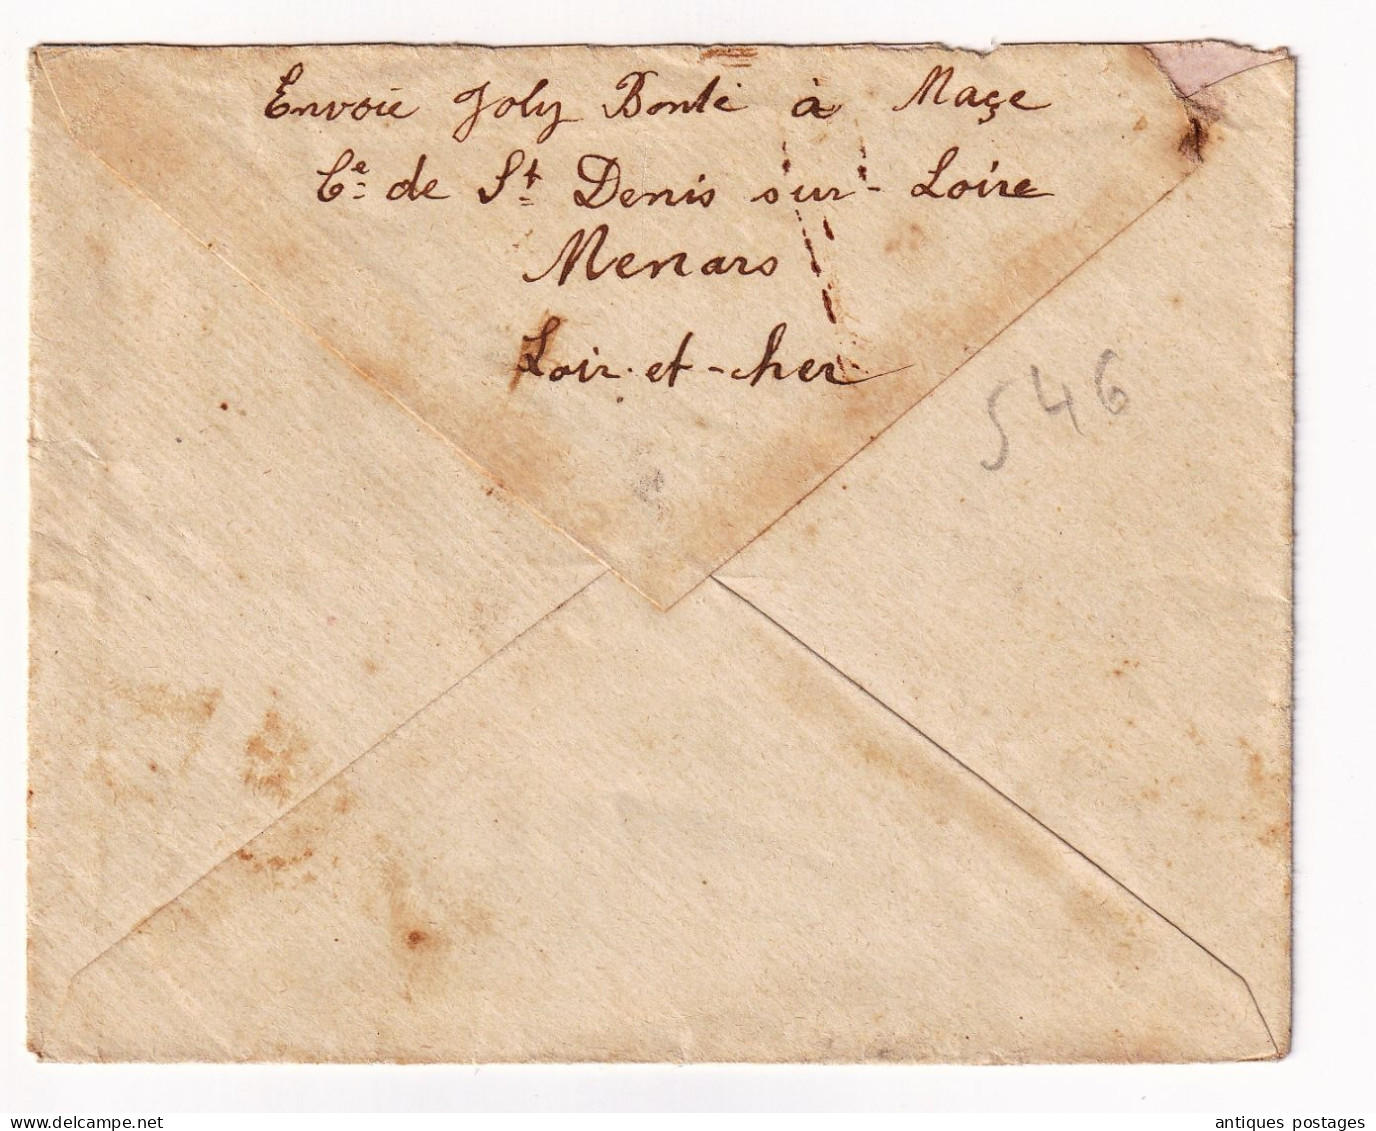 Envoie Joly Bonté à Maçe
Cᵉ de Sᵗ Denis sur-Loire
Menars
Loir-et-cher
546
www.delcampe.net
antiques postages